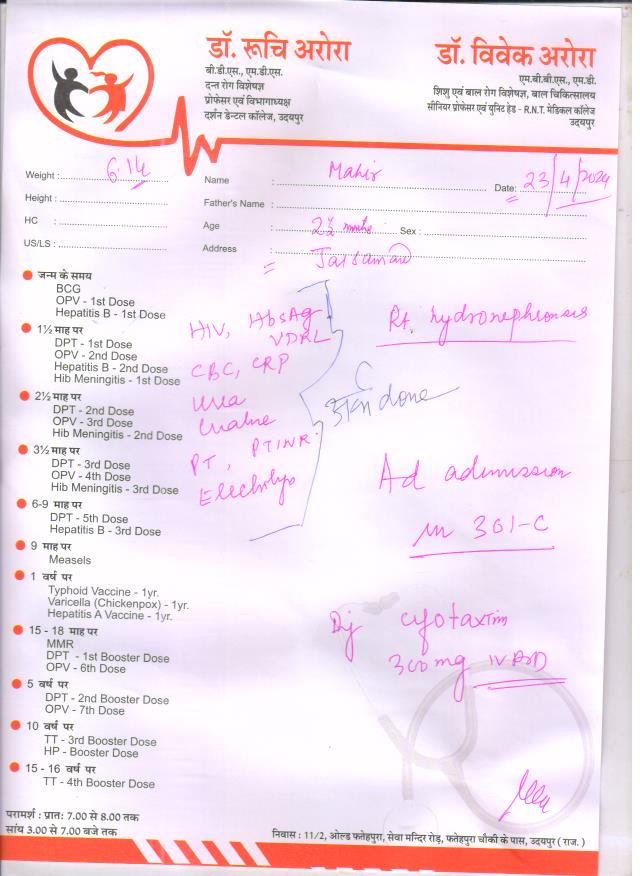 डॉ. रूचि अरोरा
बी.डी.एस., एम.डी.एस.
दन्त रोग विशेषज्ञ
प्रोफेसर एवं विभागाध्यक्ष
दर्शन डेन्टल कॉलेज, उदयपुर
डॉ. विवेक अरोरा
एम.बी.बी.एस., एम.डी.
शिशु एवं बाल रोग विशेषज्ञ, बाल चिकित्सालय
सीनियर प्रोफेसर एवं युनिट हेड - R.N.T. मेडिकल कॉलेज
उदयपुर
Weight : 6.14
Height :
HC :
US/LS :
Name : Mahir Date: 23/4/2024
Father's Name :
Age : 2½ Sex :
Address :
जन्म के समय
BCG
OPV - 1st Dose
Hepatitis B - 1st Dose
1½ माह पर
DPT - 1st Dose
OPV - 2nd Dose
Hepatitis B - 2nd Dose
Hib Meningitis - 1st Dose
2½ माह पर
DPT - 2nd Dose
OPV - 3rd Dose
Hib Meningitis - 2nd Dose
3½ माह पर
DPT - 3rd Dose
OPV - 4th Dose
Hib Meningitis - 3rd Dose
6-9 माह पर
DPT - 5th Dose
Hepatitis B - 3rd Dose
9 माह पर
Measels
1 वर्ष पर
Typhoid Vaccine - 1yr.
Varicella (Chickenpox) - 1yr.
Hepatitis A Vaccine - 1yr.
15 - 18 माह पर
MMR
DPT - 1st Booster Dose
OPV - 6th Dose
5 वर्ष पर
DPT - 2nd Booster Dose
OPV - 7th Dose
10 वर्ष पर
TT - 3rd Booster Dose
HP - Booster Dose
15 - 16 वर्ष पर
TT - 4th Booster Dose
HIV, HbsAg
VDRL
CBC, CRP
Urea
PT, PTINR
done
Rt. hydronephrosis
Ad admission
in 301-C
300mg IV BD
परामर्श : प्रात: 7.00 से 8.00 तक
सांय 3.00 से 7.00 बजे तक
निवास : 11/2, ओल्ड फतेहपुरा, सेवा मन्दिर रोड़, फतेहपुरा चौकी के पास, उदयपुर ( राज. )